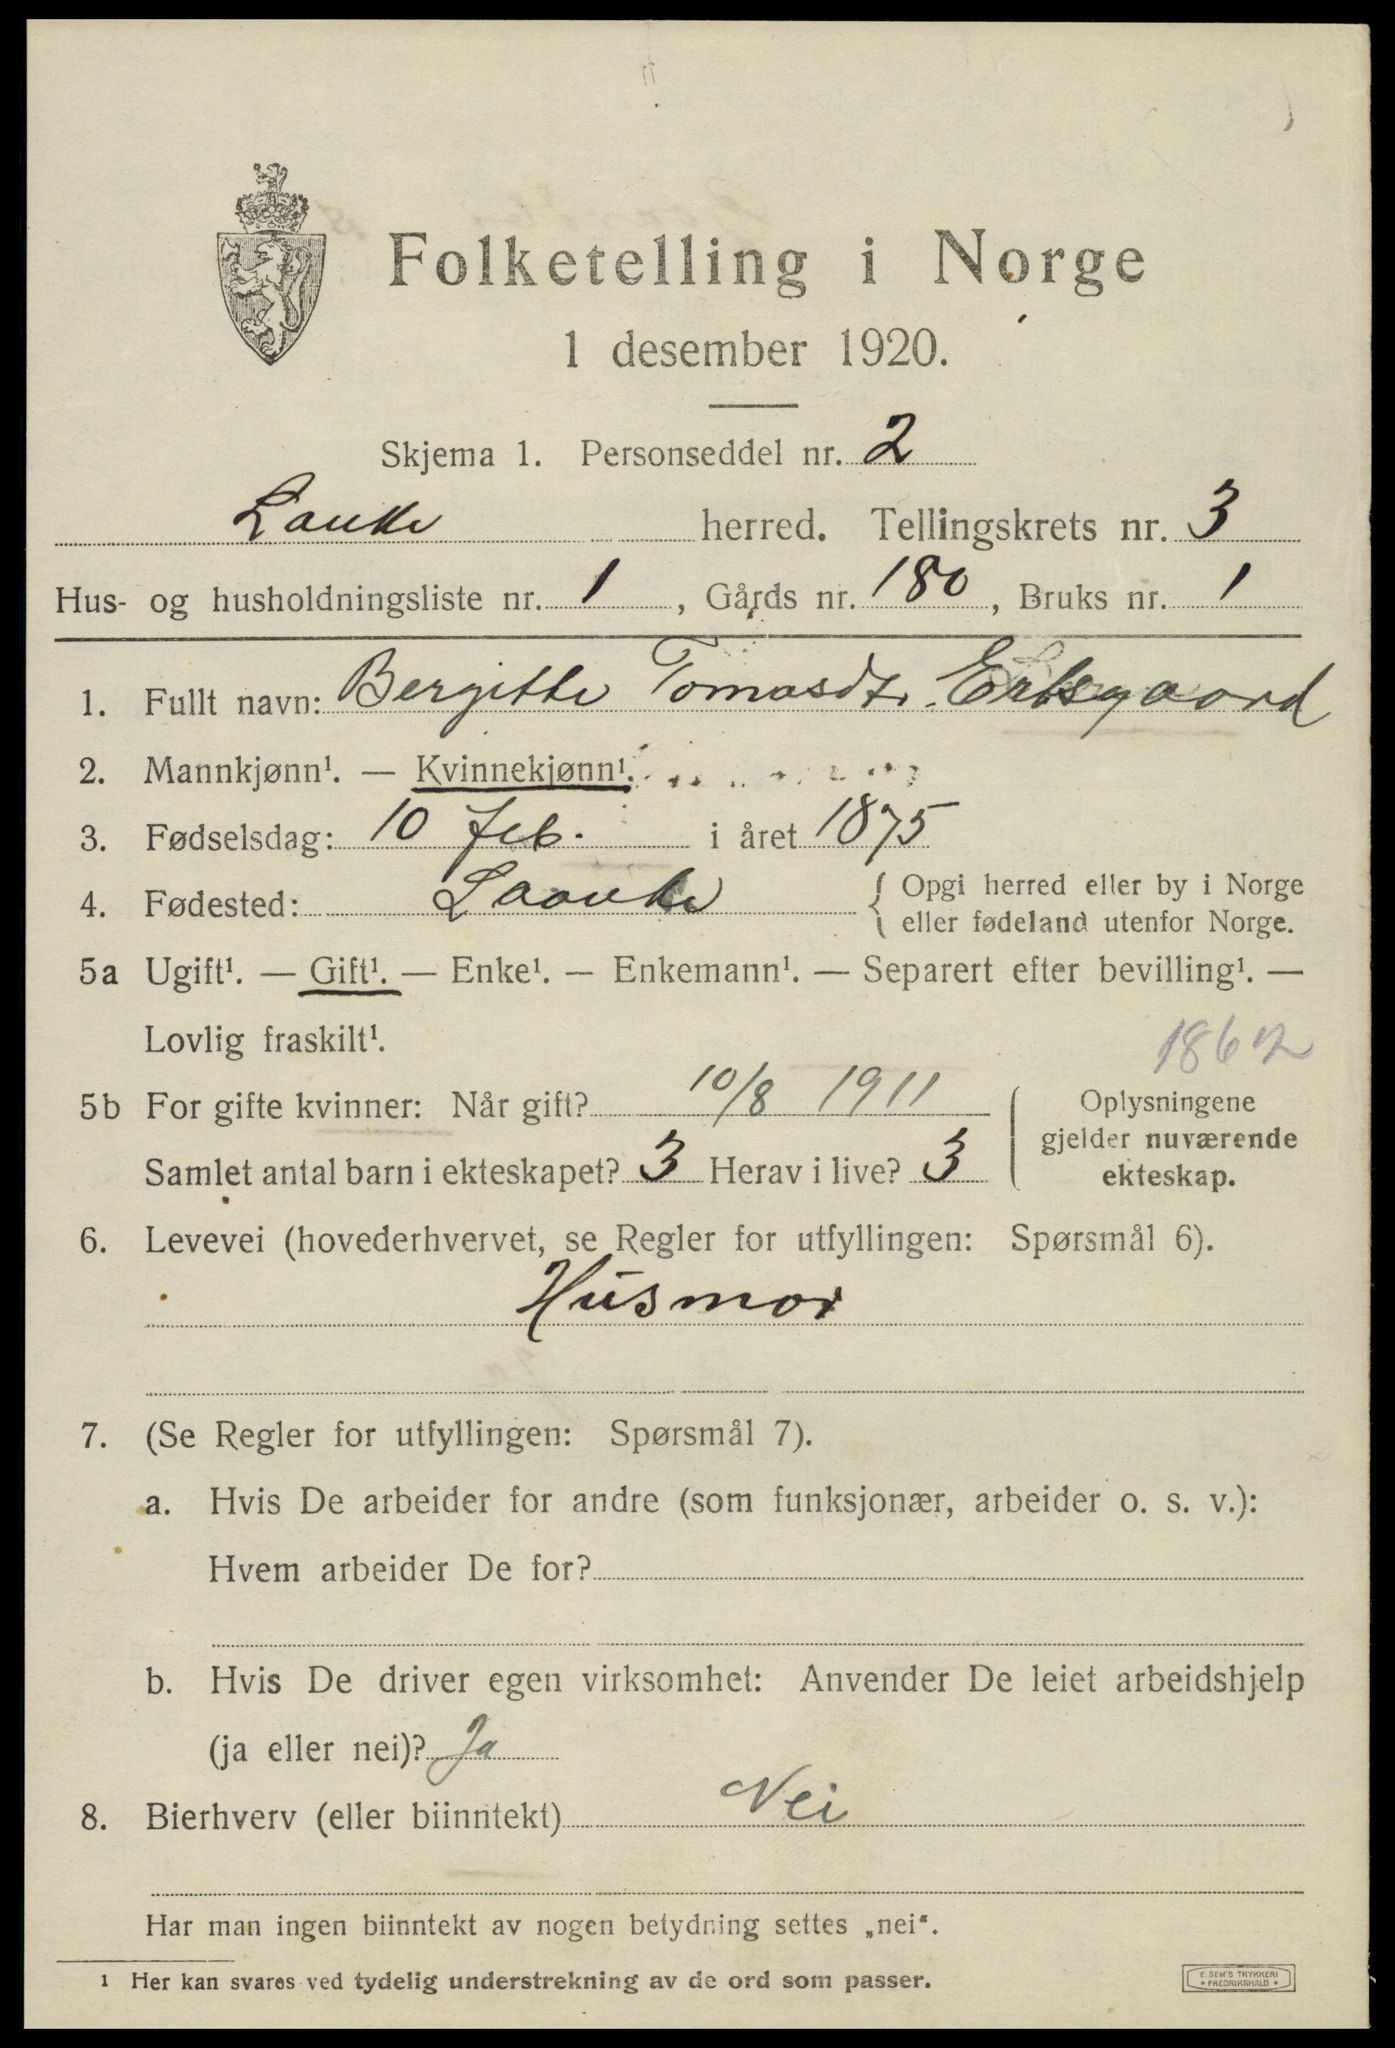 Folketelling i Norge
1 desember 1920.
Skjema 1. Personseddel nr. 2
herred. Tellingskrets nr. 3
Hus- og husholdningsliste nr. 1, Gårds nr. 180, Bruks nr. 1
1. Fullt navn: Bergitte Tomasdtr. Ertsgaard
2. Mannkjønn¹. — Kvinnekjønn¹.
3. Fødselsdag: 10 feb. i året 1875
4. Fødested: { Opgi herred eller by i Norge
eller fødeland utenfor Norge.
5a Ugift¹. — Gift¹. — Enke¹. — Enkemann¹. — Separert efter bevilling¹. —
Lovlig fraskilt¹.
1862
5b For gifte kvinner: Når gift? 10/8 1911
Samlet antal barn i ekteskapet? 3 Herav i live? 3
Oplysningene
gjelder nuværende
ekteskap.
6. Levevei (hovederhvervet, se Regler for utfyllingen: Spørsmål 6).
Husmor
7. (Se Regler for utfyllingen: Spørsmål 7).
a. Hvis De arbeider for andre (som funksjonær, arbeider o. s. v.):
Hvem arbeider De for?
b. Hvis De driver egen virksomhet: Anvender De leiet arbeidshjelp
(ja eller nei)? Ja
8. Bierhverv (eller biinntekt) Nei
Har man ingen biinntekt av nogen betydning settes „nei“.
¹ Her kan svares ved tydelig understrekning av de ord som passer.
E. SEM'S TRYKKERI
FREDRIKSHALD